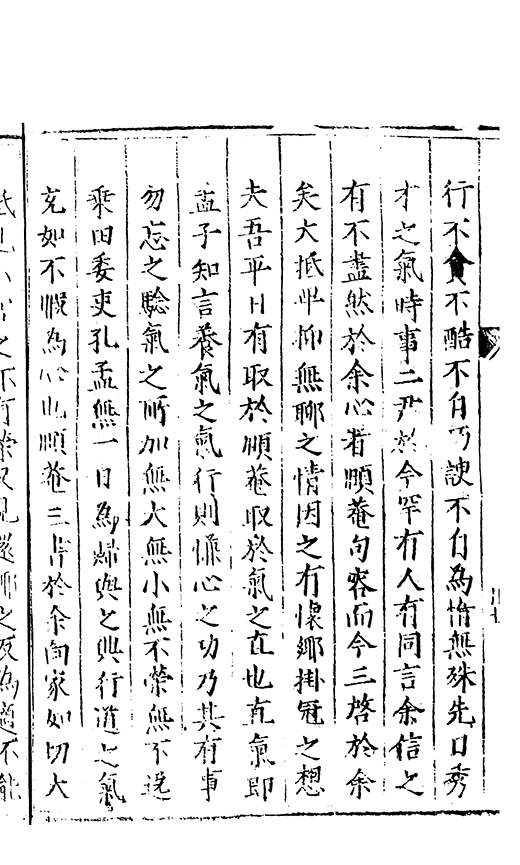 行不貪不酷不自巧諛不自為惰無殊先日秀
才之氣時事二尹於今罕有人有同言余信之
有不盡然於余心者順菴句容而今三啓於余
矣大抵卑抑無聊之情因之有懷鄉掛冠之想
夫吾平日有取於順菴取於氣之直也直氣即
孟子知言養氣之氣行則慊心之功乃其有事
勿忘之驗氣之所加無大無小無不榮無不逆
乘田委吏孔孟無一日為歸與之與行道之氣
充如不慨為心也順菴三書於余向家如切大
之不可榮